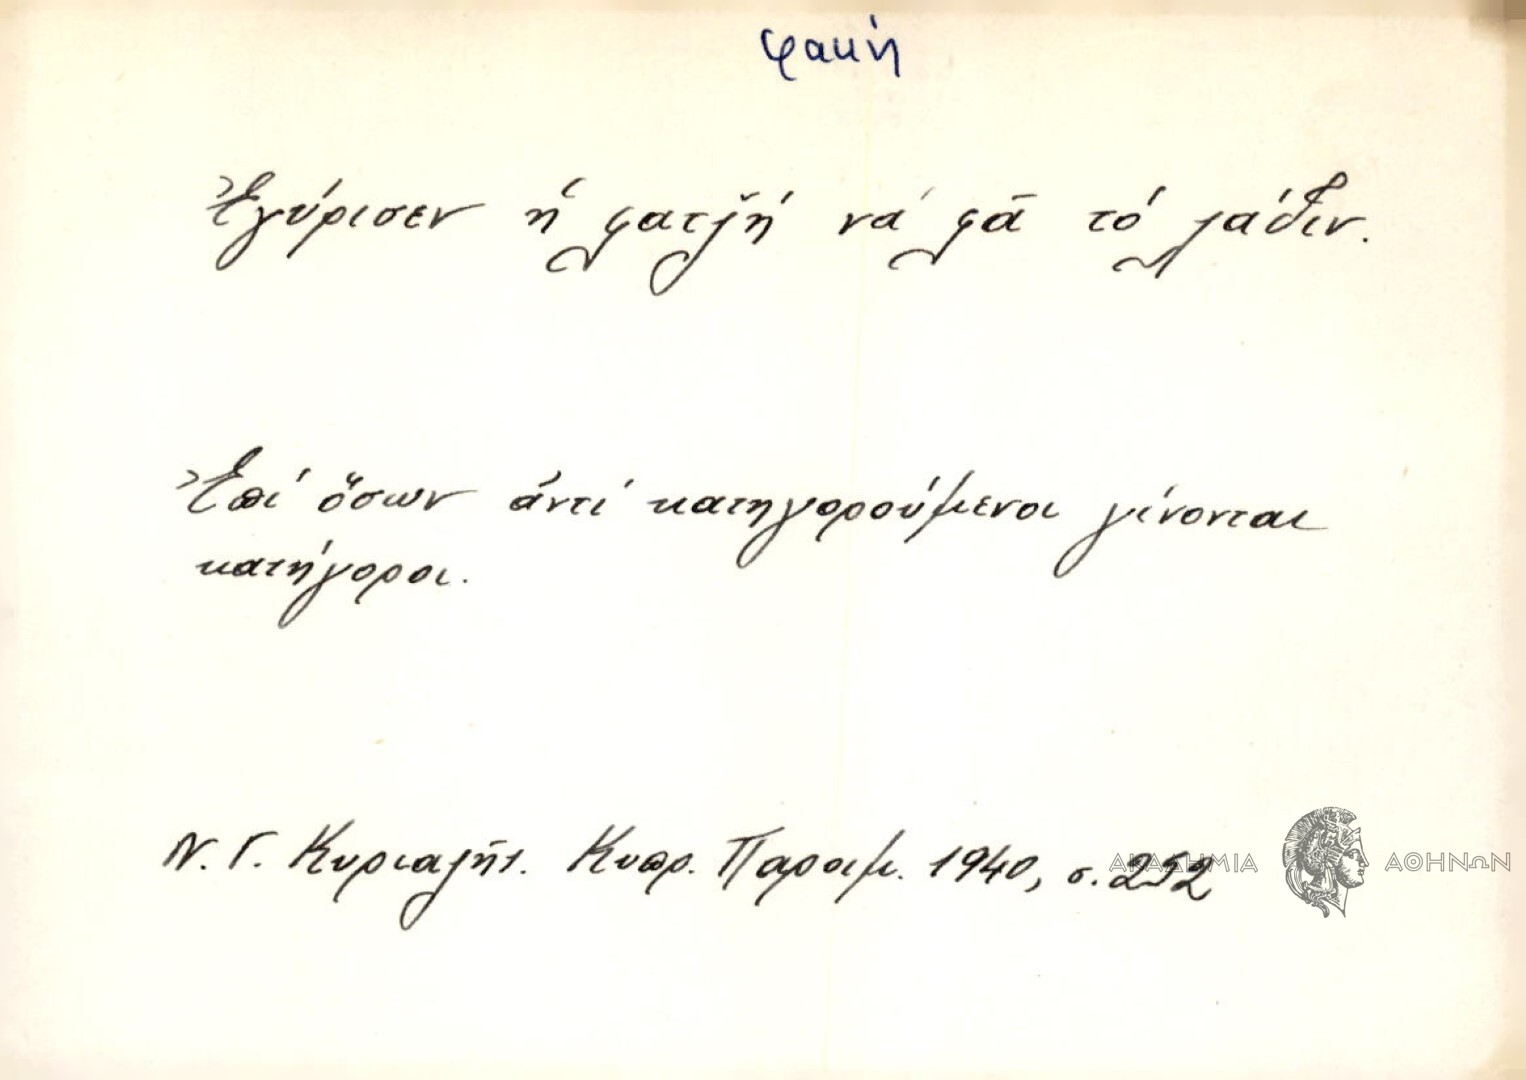 φακή
Ἐγύρισεν ἡ φατζ̆ή νά φᾶ τό λάδιν.
Ἐπί ὅσων ἀντί κατηγορούμενοι γίνονται
κατήγοροι.
Ν. Γ. Κυριαζῆς. Κυπρ. Παροιμ. 1940, σ. 252
ΑΚΑΔΗΜΙΑ ΑΘΗΝΩΝ